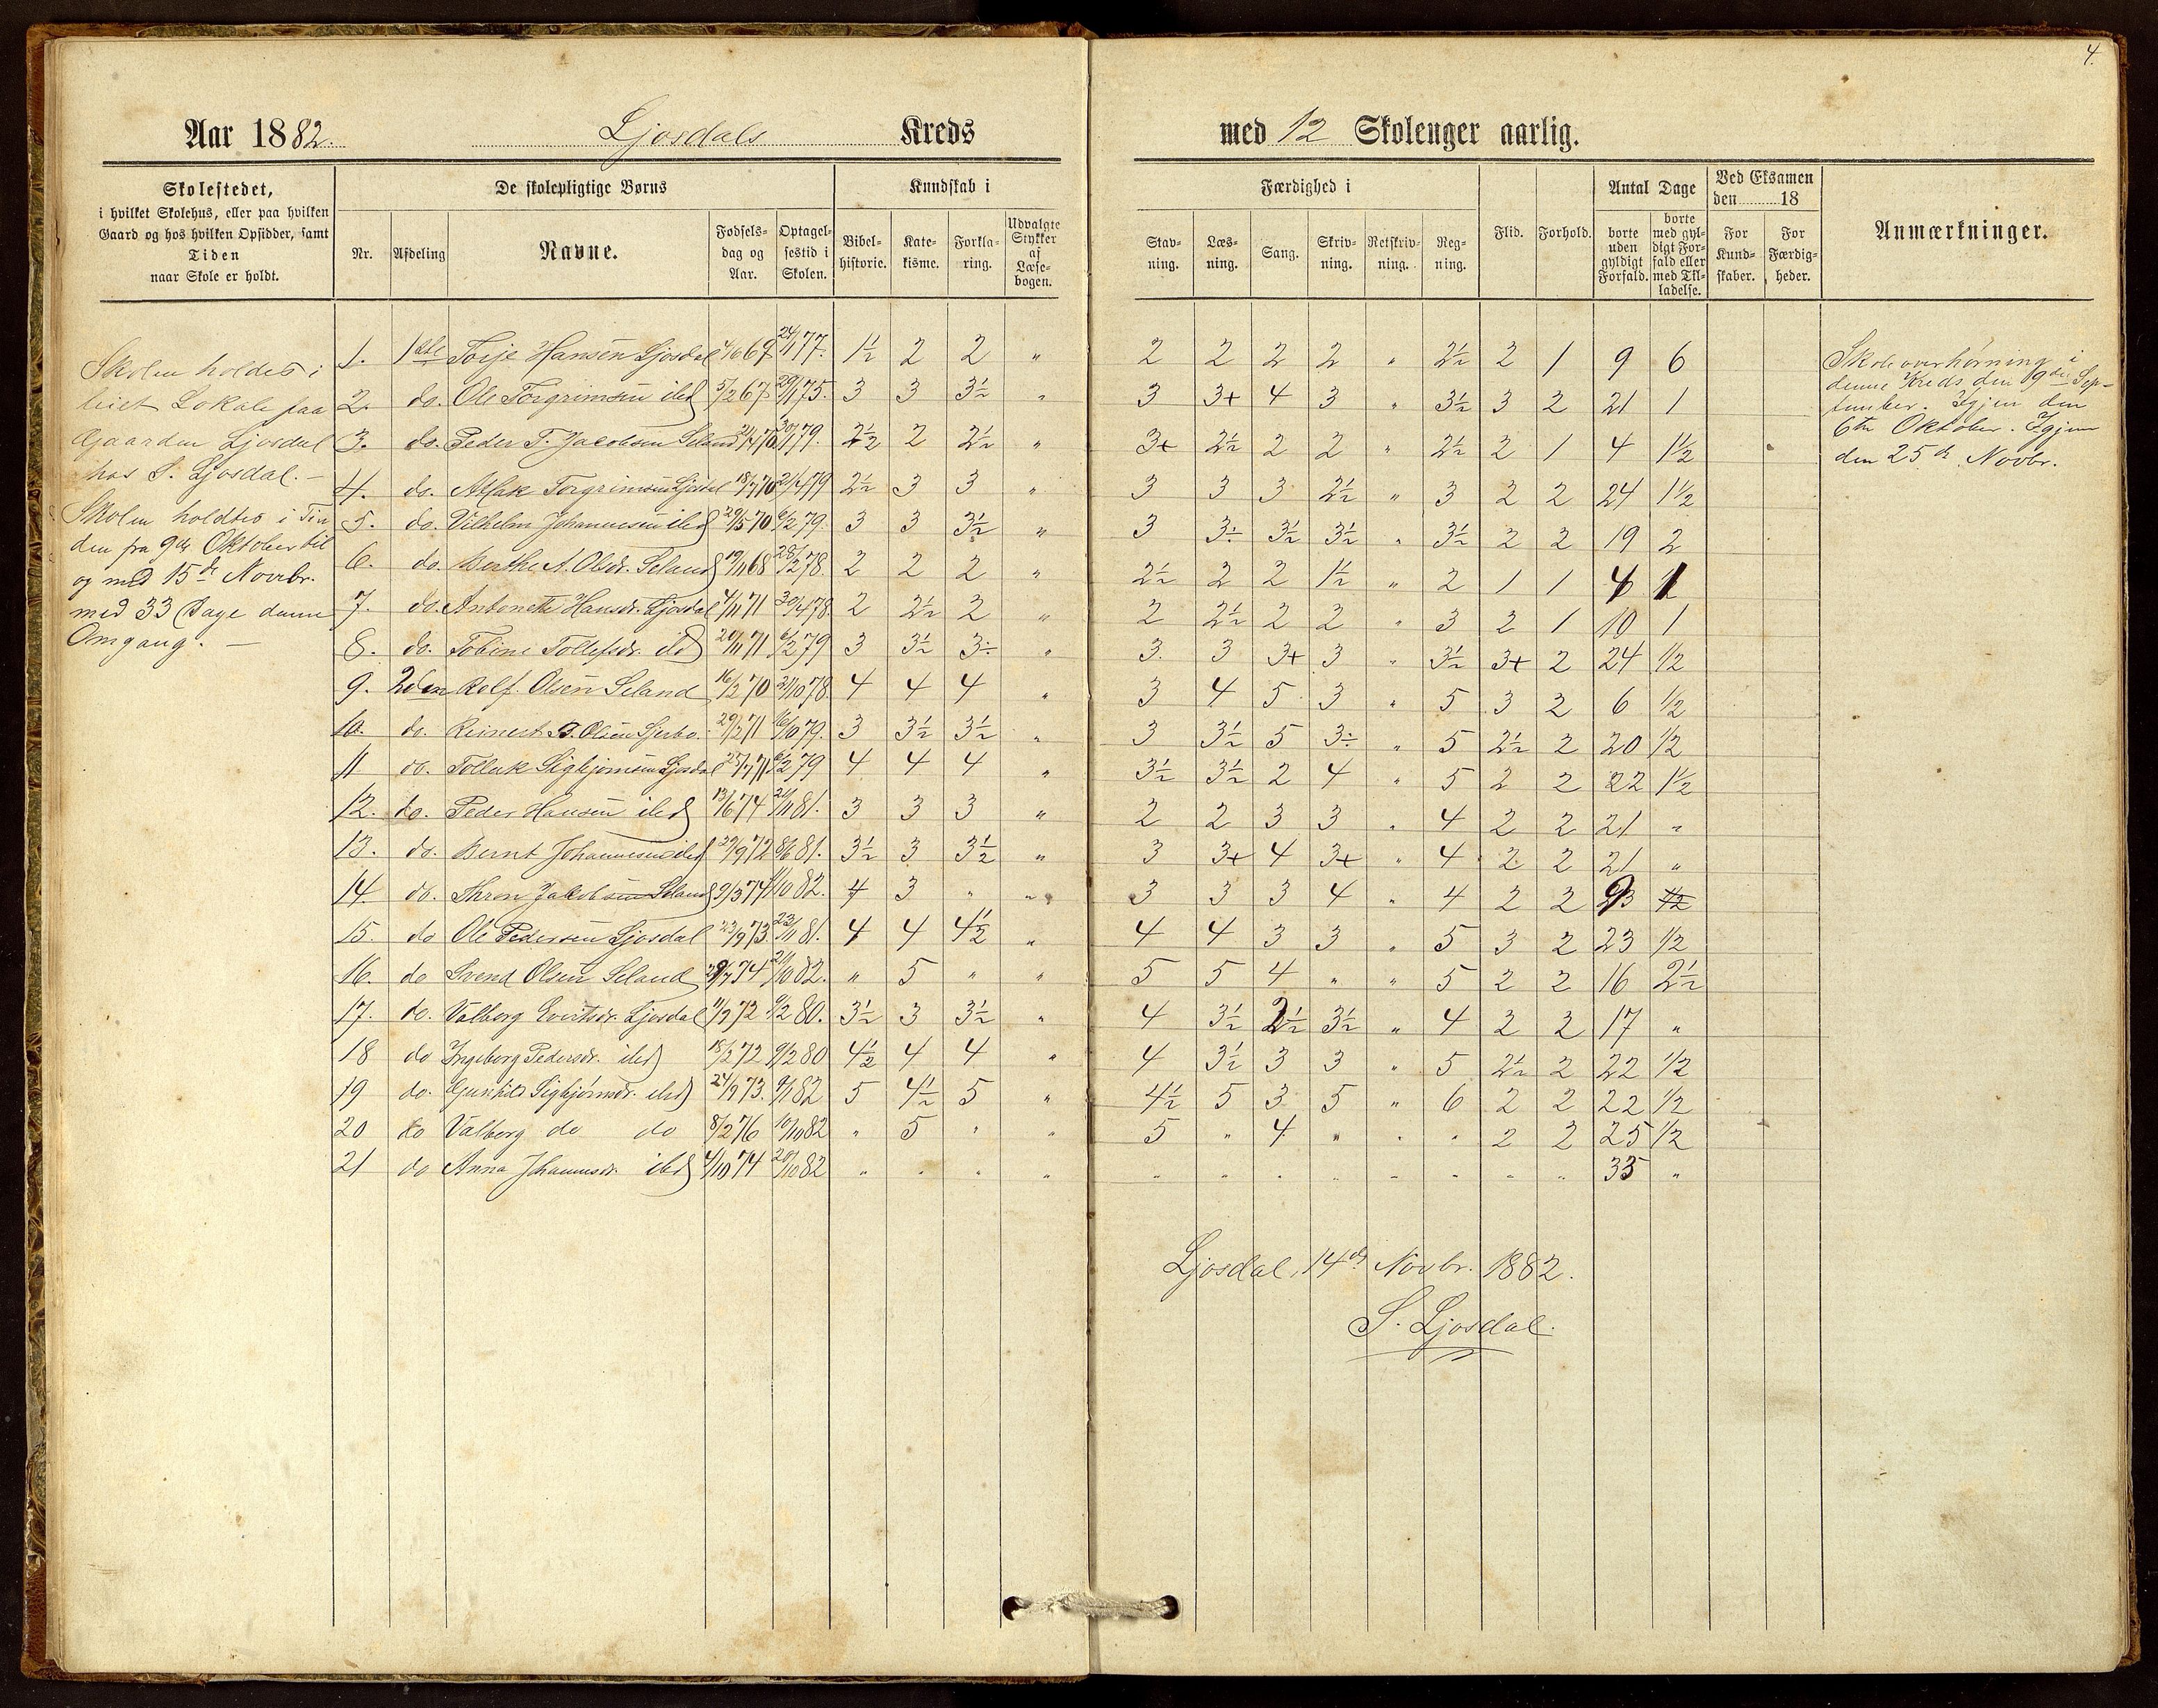 4.
Aar 1882. Ljosdals Kreds med 12 Skoleuger aarlig.
Skolestedet,
i hvilket Skolehus, eller paa hvilken
Gaard og hos hvilken Opsidder, samt
Tiden
naar Skole er holdt.
De skolepligtige Børns
Nr.
Afdeling
Navne.
Fødsels-
dag og
Aar.
Optagel-
sestid i
Skolen.
Kundskab i
Bibel-
historie.
Kate-
kisme.
Forkla-
ring.
Udvalgte
Stykker
af
Læse-
bogen.
Færdighed i
Stav-
ning.
Læs-
ning.
Sang.
Skriv-
ning.
Retskriv-
ning.
Reg-
ning.
Flid.
Forhold.
Antal Dage
borte
uden
gyldigt
Forfald.
borte
med gyl-
digt For-
fald eller
med Til-
ladelse.
Ved Eksamen
den 18
For
Kund-
skaber.
For
Færdig-
heder.
Anmærkninger.
Skolen holdes i
leiet Lokale paa
Gaarden Ljosdal
hos S. Ljosdal. —
Skolen holdtes i Tin
den fra 9de Oktober til
og med 15de Novbr.
med 33 Dage denne
Omgang. —
1. 1ste Torje Hansen Ljosdal 4/6 69 24/1 77. 1½ 2 2 " 2 2 2 2 " 2½ 2 1 9 6
2. do. Ole Torgrimsen ibd 5/2 67 29/1 75. 3 3 3½ " 3 3+ 4 3 " 3½ 3 2 21 1
3. do. Peder T. Jacobsen Seland 30/1 79. 2½ 2 2½ " 3+ 2½ 2 2 " 2½ 2 1 4 1½
4. do. Aslak Torgrimsen Ljosdal 18/7 70 21/4 79 2½ 3 3 " 3 3 3 2½ " 3 2 2 24 1½
5. do. Vilhelm Johannessen ibd 29/5 70 6/2 79. 3 3 3½ " 3 3÷ 3½ 3½ " 3½ 2 2 19 2
6. do. Berthe A. Olsdr. Seland 19/11 68 28/2 78. 2 2 2 " 2½ 2 2 1½ " 2 1 1 4 1
7. do. Antonette Hansdr. Ljosdal 4/11 71 30/4 78. 2 2½ 2 " 2 2½ 2 2 " 3 2 1 10 1
8. do. Tobine Tollefsdr. ibd 20/11 71 6/2 79 3 3½ 3÷ " 3. 3 3+ 3 " 3½ 3+ 2 24 1/2
9. 2den Rolf. Olsen Seland 16/2 70 21/10 78. 4 4 4 " 3 4 5 3 " 5 3 2 6 1/2
10. do. Reinert B. Olsen 29/2 71 16/10 79. 3 3½ 3½ " 3 3½ 5 3÷ " 5 2½ 2 20 1/2
11 do. Tollak Sigbjørnsen Ljosdal 25/7 71 6/2 79 4 4 4 " 3½ 3½ 2 4 " 5 2 2 22 1½
12. do. Peder Hansen ibd 13/6 74 21/11 81. 3 3 3 " 2 2 3 3 " 4 2 2 21 "
13. do. Bernt Johannessen ibd 29/9 72 8/6 81. 3½ 3 3½ " 3 3+ 4 3+ " 4 2 2 21 "
14. do. Thron Jakobsen Seland 9/3 74 11/10 82. 4 3 " " 3 3 3 4 " 4 2 2 1/2
15. do Ole Pedersen Ljosdal 23/9 73. 23/11 81. 4 4 4½ " 4 4 3 3 " 5 3 2 23 1/2
16. do Svend Olsen Seland 29/7 74 21/10 82. " 5 " " 5 5 4 " " 5 2 2 16 2½
17. do. Valborg Evertsdr. Ljosdal 11/9 72 9/2 80. 3½ 3 3½ " 4 3½ 2½ 3½ " 4 2 2 17 "
18 do Ingeborg Pedersdr. ibd 18/2 72 9/2 80 4½ 4 4 " 4 3½ 3 3 " 5 2½ 2 22 1/2
19 do. Gunhild Sigbjørnsdr. ibd 24/9 73. 9/1 82 5 4½ 5 " 4½ 5 3 5 " 6 2 2 22 1/2
20 do Valborg do do 8/2 76 10/10 82 " 5 " " 5 " 4 " " " 2 2 25 1/2
21 do Anna Johannesdr. ibd 4/10 74 20/10 82 " " " " " " " " " " " " 33 "
Skoleoverhørning i
denne Kreds den 19de Sep-
tember. Igjen den
6te Oktober. Igjen
den 25de Novbr.
Ljosdal, 14de Novbr. 1882.
S. Ljosdal.